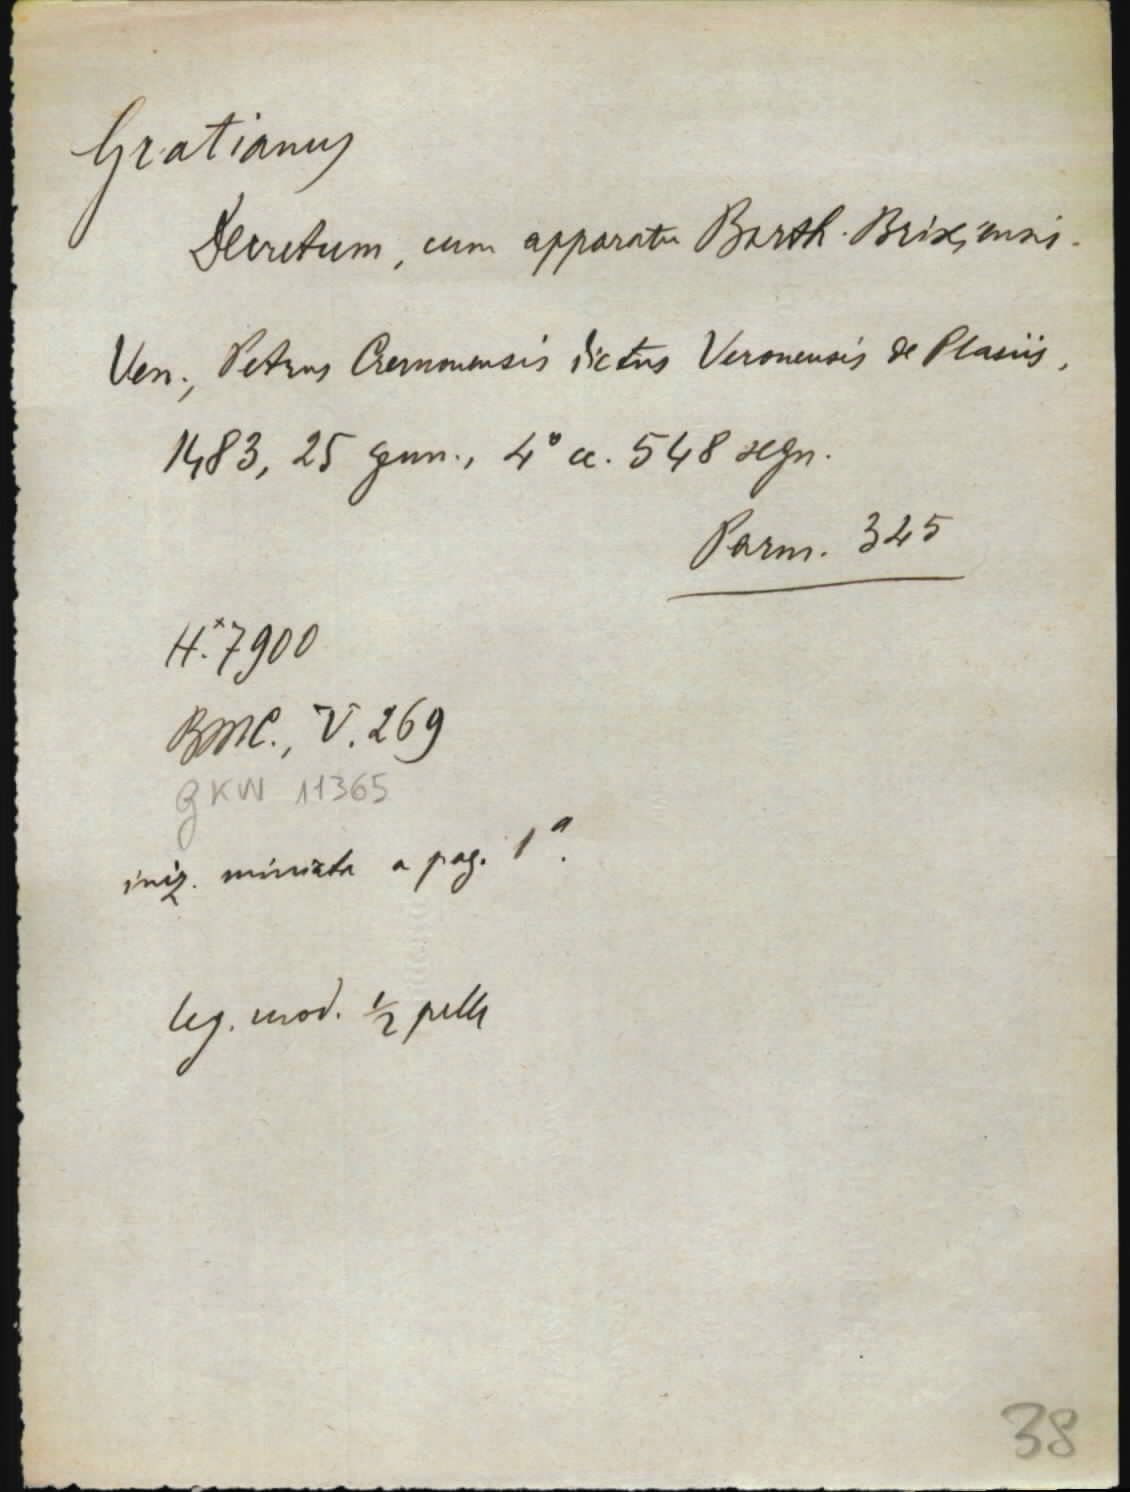 Gratianus
Decretum, cum apparatu Barth. Brixiensis.
Ven., Petrus Cremonensis dictus Veronensis de Plasiis,
1483, 25 genn., 4° cc. 548 segn.
Parm. 325
H.*7900
BMC., V. 269
GKW 11365
iniz. miniata a pag. 1ª.
leg. mod. ½ pelle
38